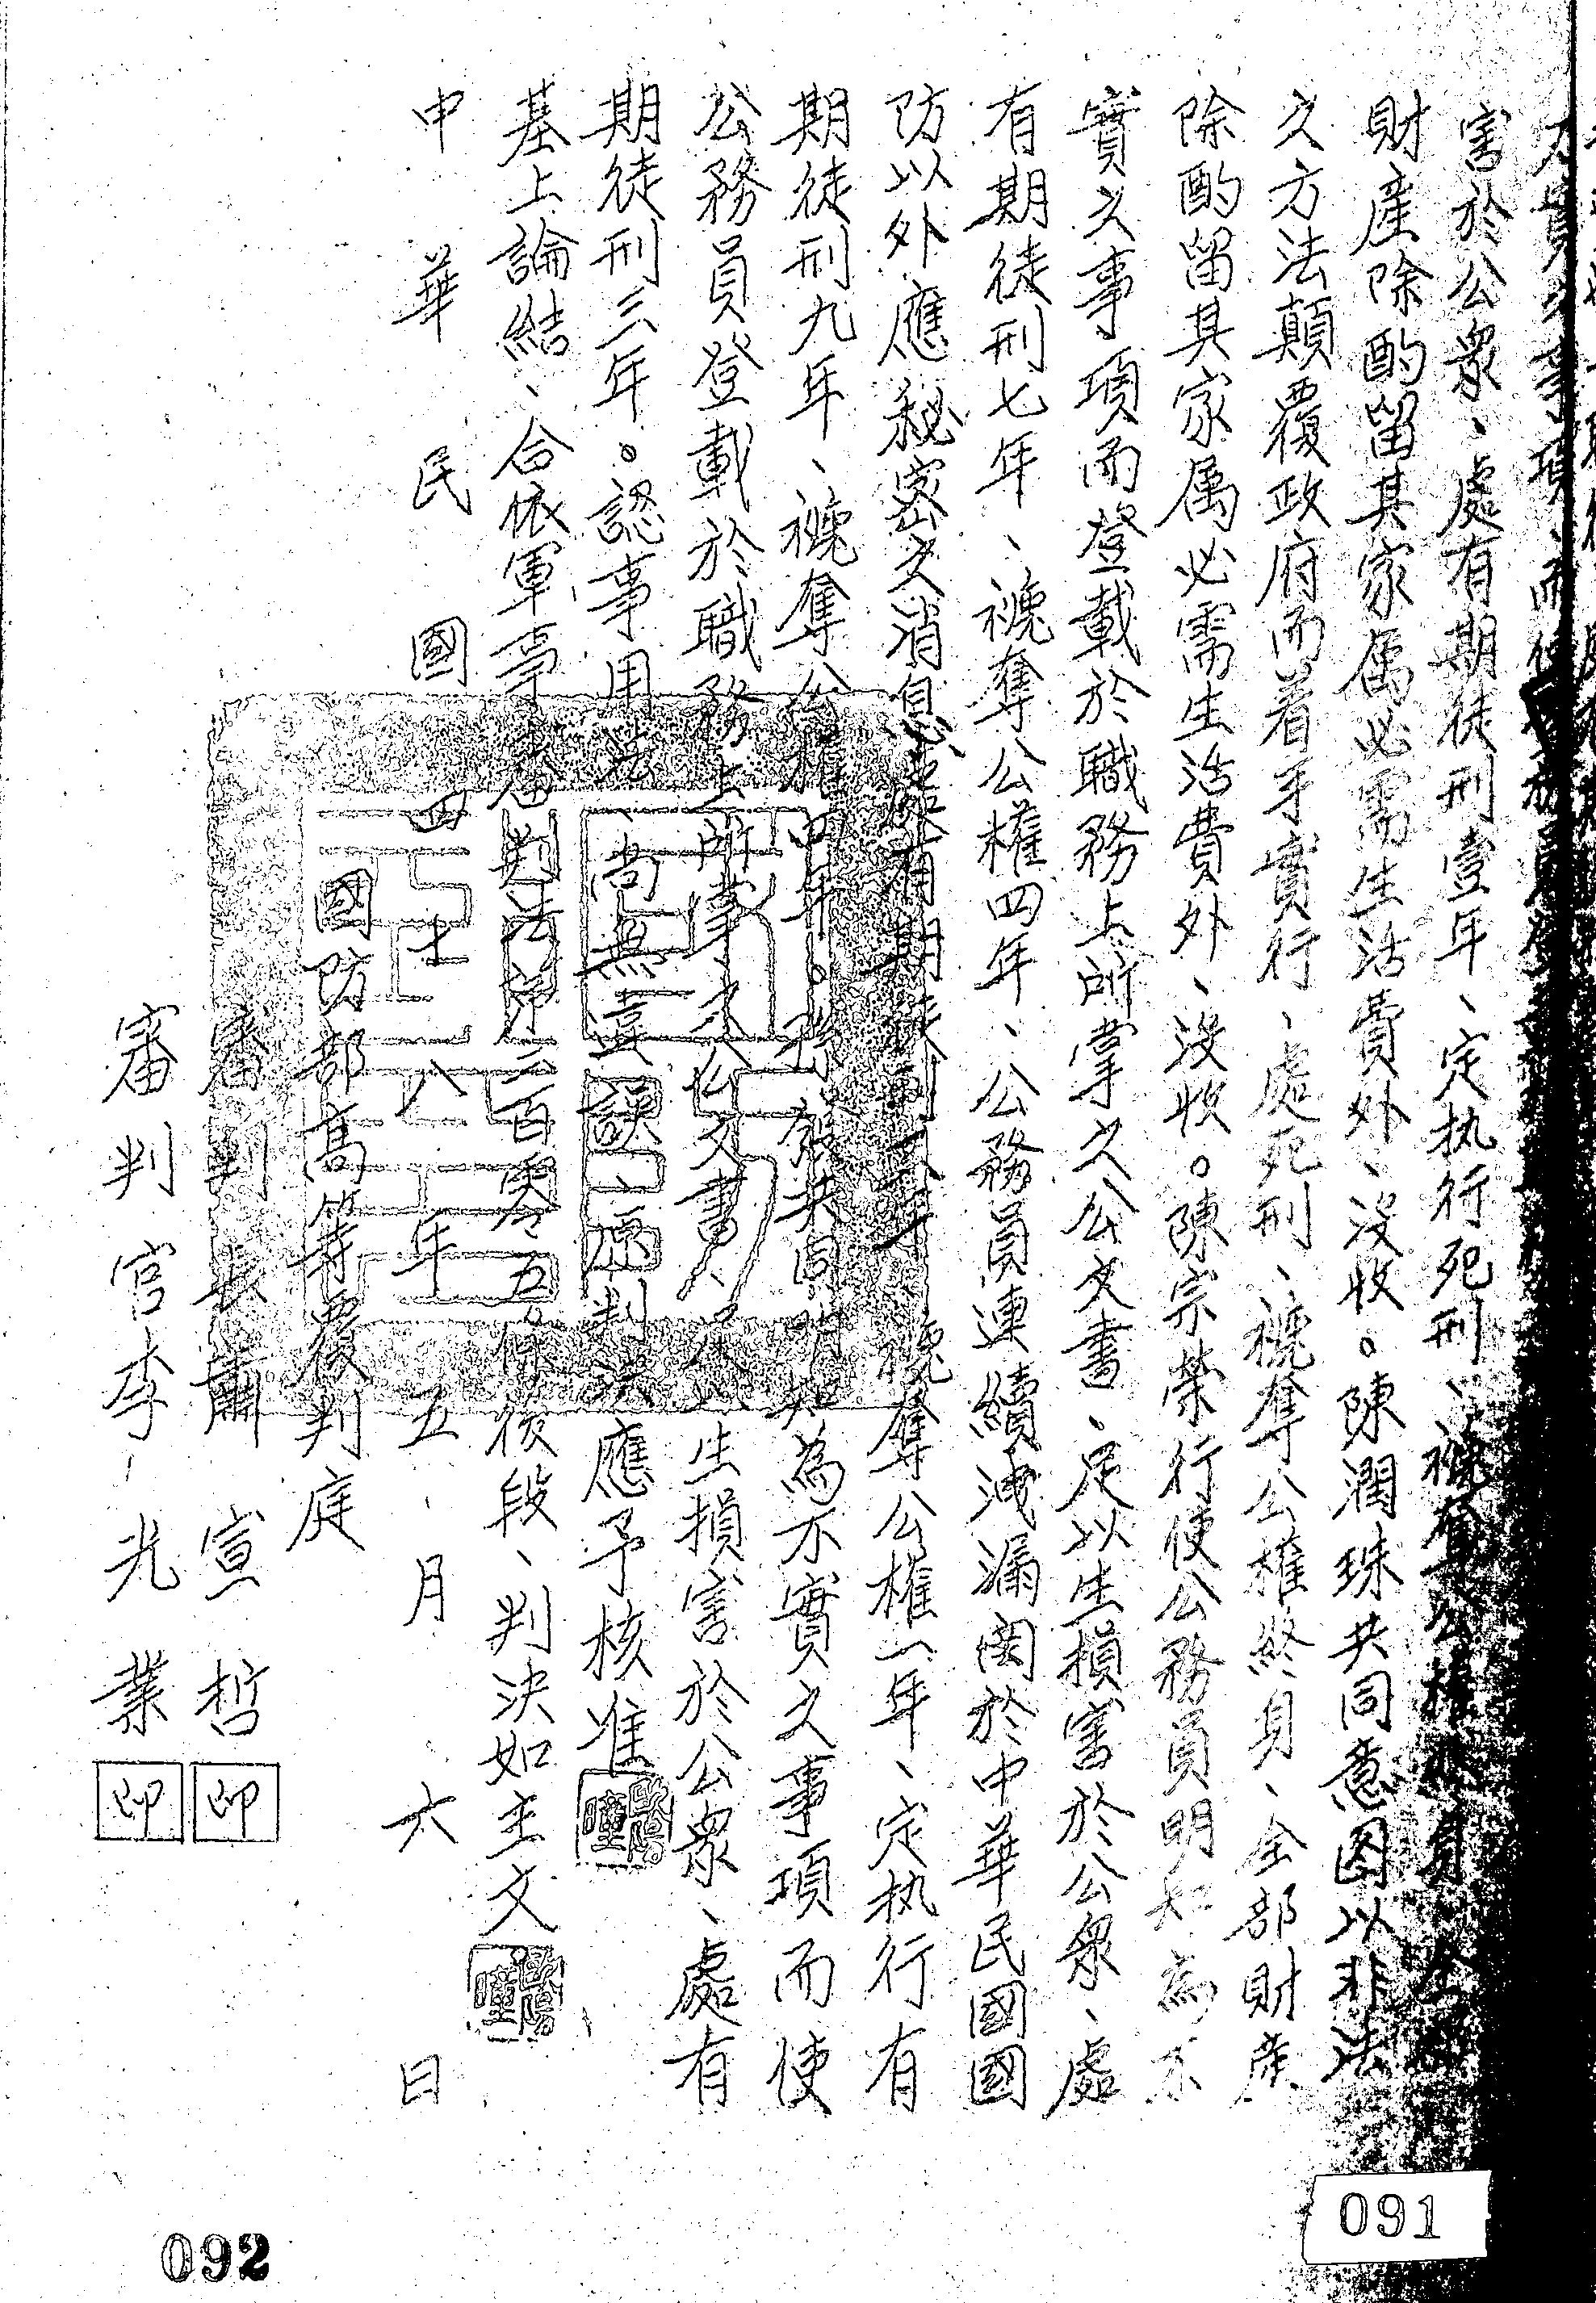 不實之事項、而使
害於公衆、處有期徒刑壹年、定执行死刑、褫奪公權終身、全部
財產除酌留其家属必需生活費外、沒收。陳潤珠共同意图以非法
之方法顛覆政府而着手實行、處死刑、褫奪公權終身、全部財產
除酌留其家属必需生活費外、沒收。陳宗榮行使公務員明知為不
實之事項而登載於職務上所掌之公文書、足以生損害於公衆、處
有期徒刑七年、褫奪公權四年、公務員連續洩漏関於中華民國國
防以外應秘密之消息、處有期徒刑 褫奪公權一年、定执行有
期徒刑九年、褫奪公權四年。 共同明知為不實之事項而使
公務員登載於職務上所掌之公文書、足以生損害於公衆、處有
期徒刑三年。認事用法尚無違誤、原判決應予核准
基上論結、合依軍事審判法第二百零五條後段、判決如主文
中華民國四十八年五月六日
國防部高等覆判庭
審判長蕭宣哲 印
審判官李光業 印
091
092